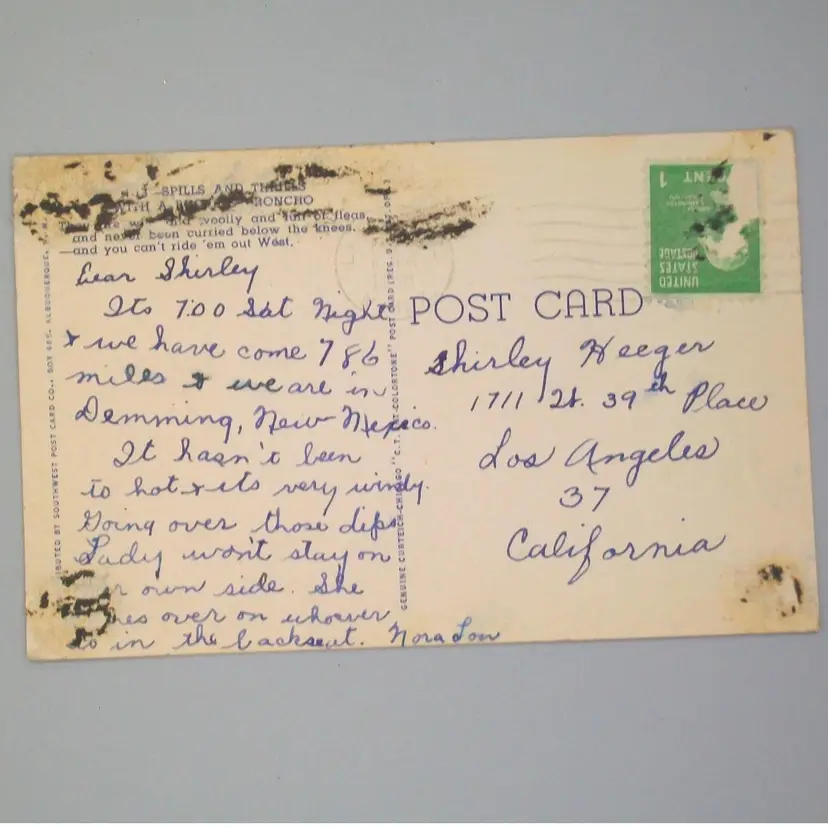 SPILLS AND THRILLS
WITH A BRONCHO
and woolly and full of fleas,
and never been curried below the knees.
—and you can't ride 'em out West.
Dear Shirley
Its 7:00 Sat Night
& we have come 786
miles & we are in
Demming, New Mexico.
It hasn't been
to hot & its very windy.
Going over those dips
Lady won't stay on
own side. She
over on whoever
in the backseat. Nora Lou
DISTRIBUTED BY SOUTHWEST POST CARD CO., BOX 685, ALBUQUERQUE, N. M.
GENUINE CURTEICH-CHICAGO "C.T. ART-COLORTONE" POST CARD (REG. U.S. PAT. OFF.)
POST CARD
Shirley Heeger
1711 W. 39th Place
Los Angeles
37
California
UNITED
STATES
POSTAGE
1 CENT